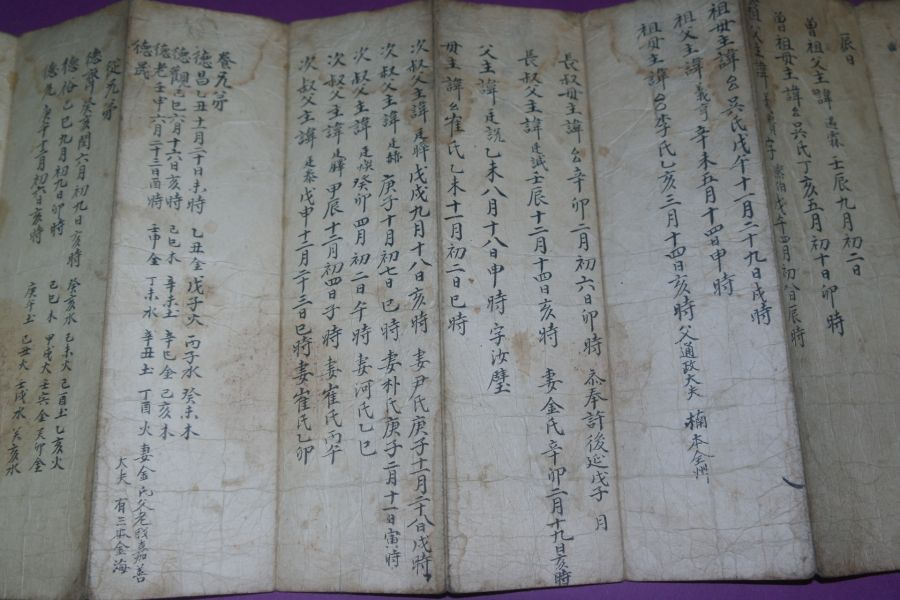 辰日
曾祖父主諱遇霖 壬辰九月初二日
曾祖母主諱 吳氏 丁亥五月初十日卯時
祖父主諱 字 戊午四月初八日辰時
祖母主諱 吳氏 戊午十一月二十九日戌時
祖父主諱義亨 辛未五月十四日申時
祖母主諱 李氏 乙亥三月十四日亥時 父通政大夫 楠 本全州
長叔母主諱 辛卯二月初六日卯時 恭奉許後延戊子 月
長叔父主諱廷誠 壬辰十二月十四日亥時 妻金氏辛卯二月十九日亥時
父主諱廷說 乙未八月十八日申時 字汝璧
母主諱 崔氏 乙未十一月初二日巳時
次叔父主諱廷暉 戊戌九月十八日亥時 妻尹氏庚子十二月二十八日戌時
次叔父主諱廷赫 庚子十月初七日巳時 妻朴氏庚子二月十一日寅時
次叔父主諱廷煥 癸卯四月初二日午時 妻河氏乙巳
次叔父主諱廷 甲辰十二月初四日子時 妻崔氏丙午
次叔父主諱廷泰 戊申十二月二十三日巳時 妻崔氏乙卯
養兄弟
德昌 乙丑十一月二十日未時 乙丑金 戊子火 丙子水 癸未木
德觀 己巳六月十六日亥時 己巳木 辛未土 辛巳金 己亥木
德老 壬申六月二十三日酉時 壬申金 丁未水 辛丑土 丁酉火 妻金氏父老 嘉善
德 大夫 有三 本金海
從兄弟
德齊 癸亥閏六月初九日亥時 癸亥水 己未火 己酉土 乙亥火
德裕 己巳九月初九日卯時 己巳木 甲戌火 壬寅金 癸卯金
德 庚午十二月初六日亥時 庚午土 己丑火 壬戌水 癸亥水